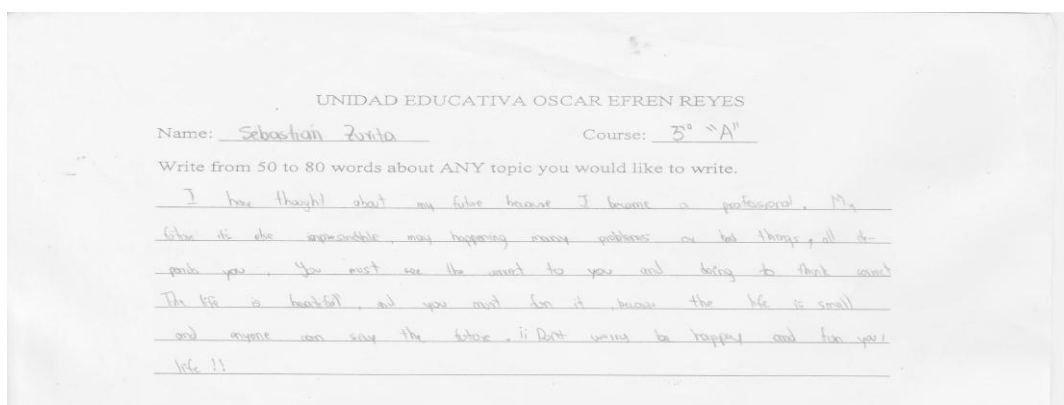 UNIDAD EDUCATIVA OSCAR EFREN REYES
Name: Sebastián Zurita Course: 3ro "A"
Write from 50 to 80 words about ANY topic you would like to write.
I have thought about my future because I become a professional. My
future is else , may happening many problems or bad things, all de-
pends you. You must see the correct to you and doing to think correct
The life is beatifull, and you must fun it, because the life is small
and anyone can say the future. ¡¡ Dont worry be happy and fun your
life !!